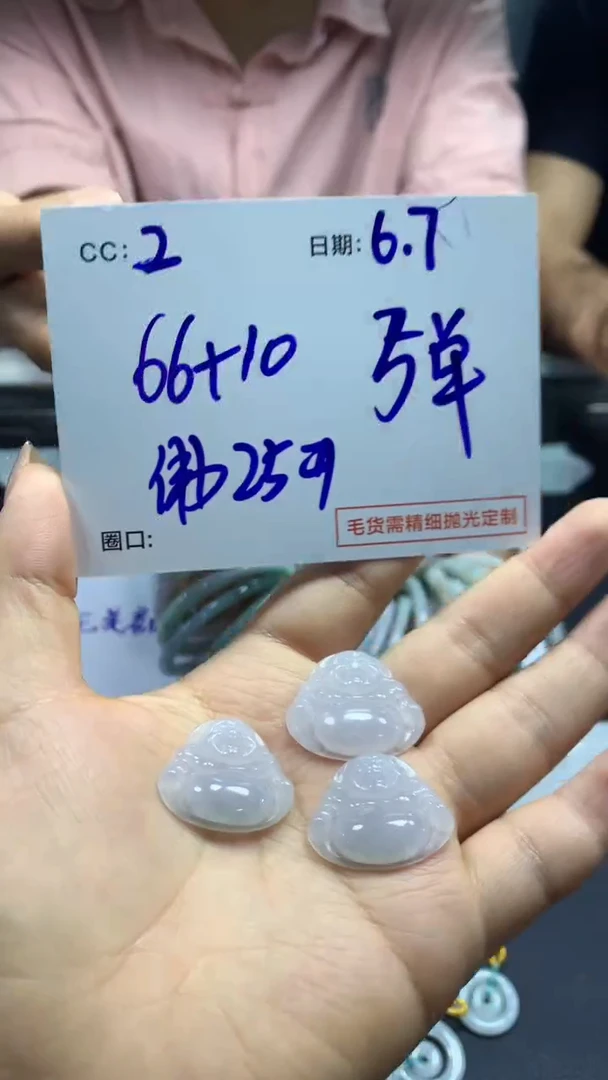 CC: 2 日期: 6.7
66+10 弹
佛25中
圈口:
毛货需精细抛光定制